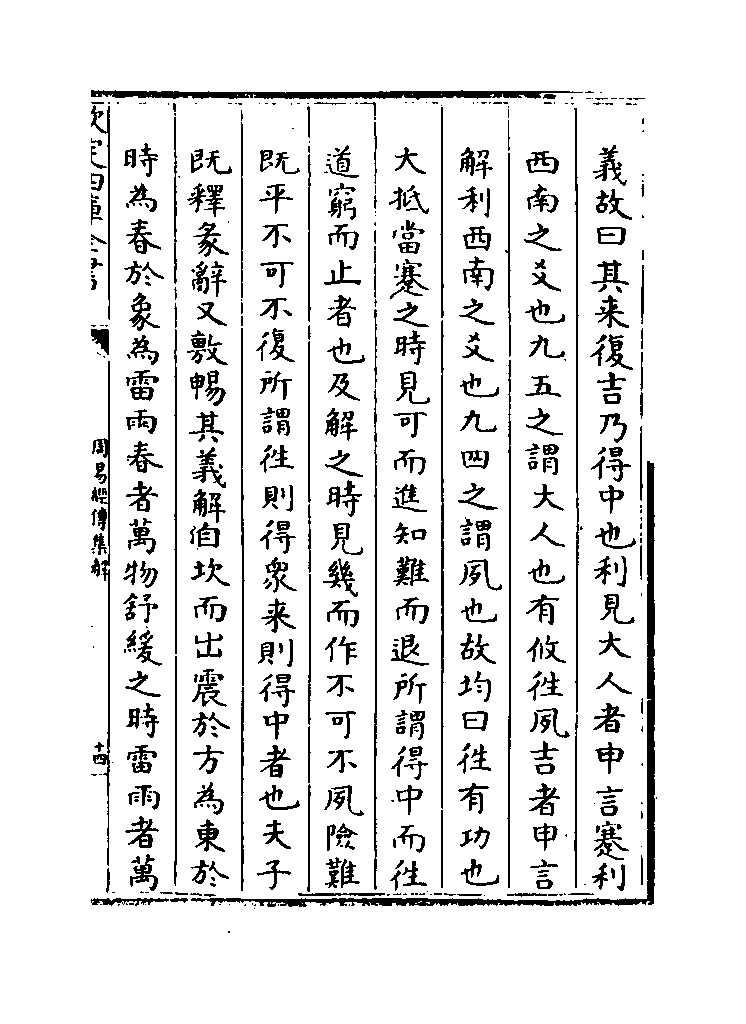 義故曰其来復吉乃得中也利見大人者申言蹇利
西南之爻也九五之謂大人也有攸徃夙吉者申言
解利西南之爻也九四之謂夙也故均曰徃有功也
大抵當蹇之時見可而進知難而退所謂得中而徃
道窮而止者也及解之時見幾而作不可不夙險難
既平不可不復所謂徃則得衆来則得中者也夫子
既釋彖辭又敷暢其義解自坎而出震於方為東於
時為春於象為雷雨春者萬物舒緩之時雷雨者萬
欽定四庫全書
周易經傳集解
十四